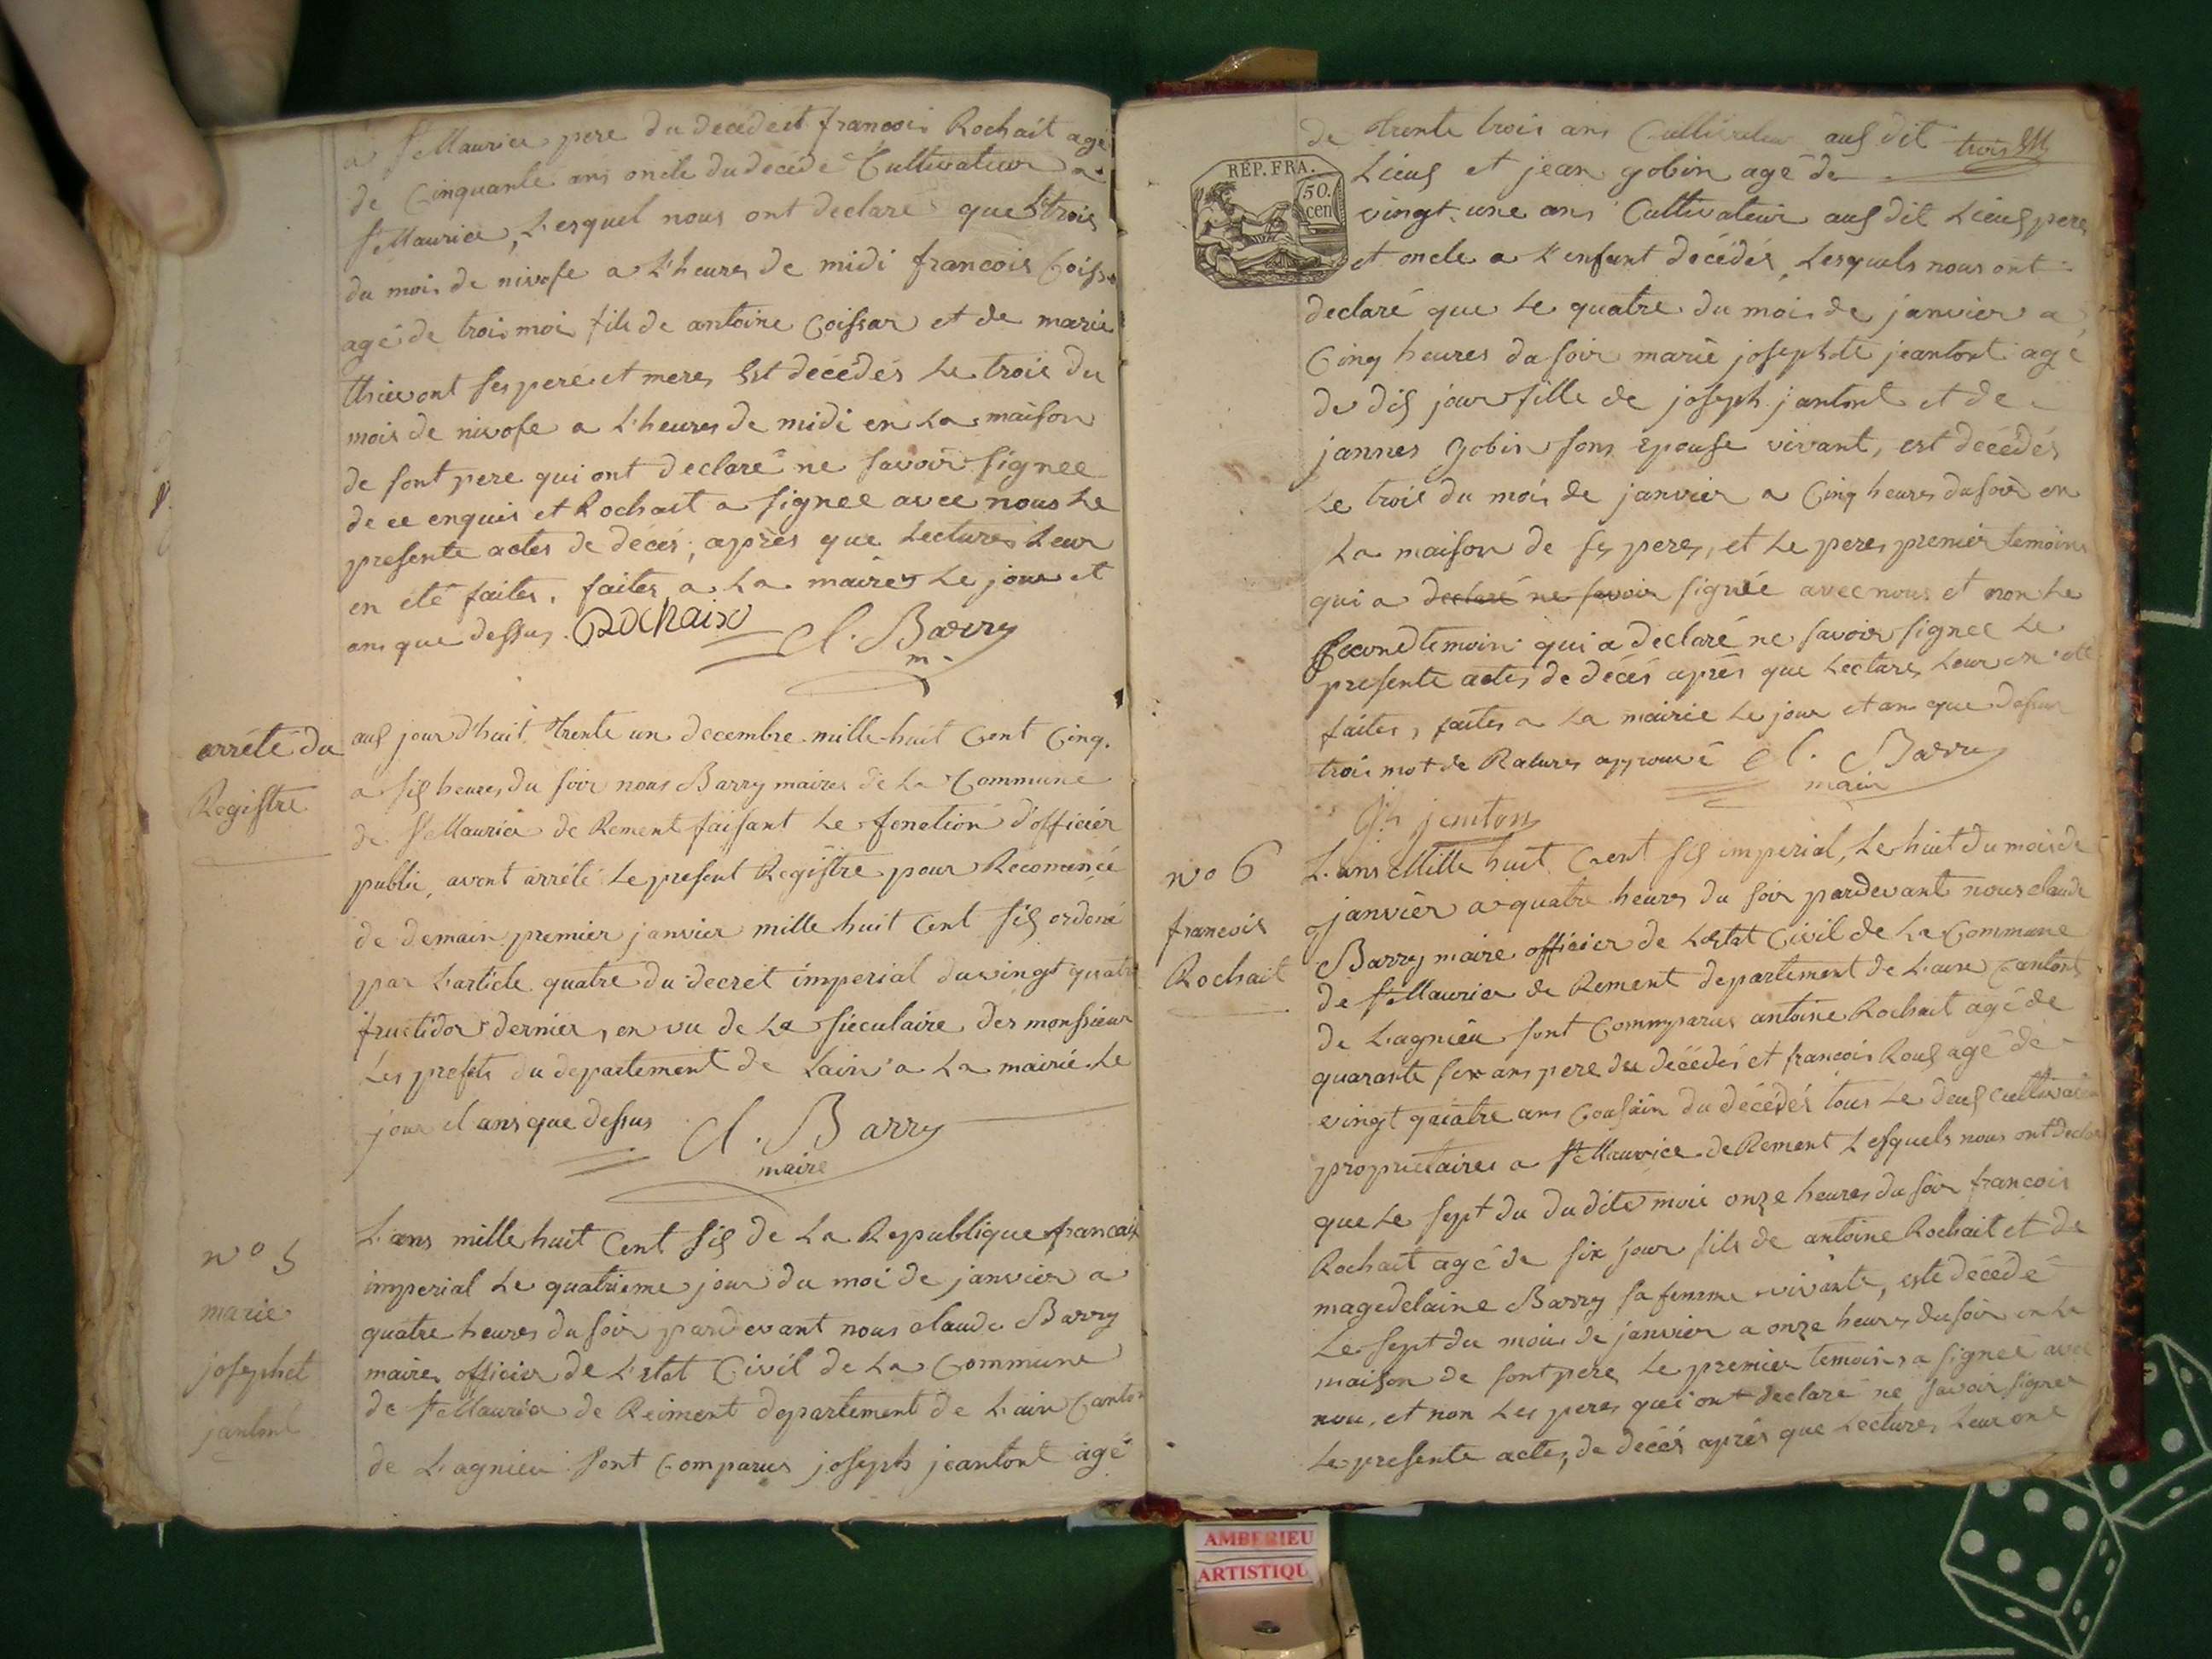 a St Maurice pere du decedeet francois Rochait agé
de Cinquante ans oncle du decede Cultivateur a
St Maurice, Lesquel nous ont declare que Le trois
du mois de nivose a L'heures de midi francois Coissa
agé de trois moi fils de antoine Coissar et de marie
ses pere et meres Est décédés Le trois du
mois de nivose a L'heures de midi en La maison
de sont pere qui ont declaré ne savoir signee
de ce enquis et Rochait a signee avec nous Le
presente actes de décés, après que Lectures Leur
en été faites, faites a La maires Le jour et
ans que dessus. ROchaix Cl. Barry
m.
arrété du
Registre
aus jour d'huit trente un decembre mille huit Cent Cinq.
a sis heures du soir nous Barry maires de La Commune
de St Maurice de Rement faisant Le fonction d'officier
public, avont arrété Le present Registre pour Recomencé
de demain premier janvier mille huit Cent sis ordoné
par Larticle quatre du decret imperial du vingt quatre
fructidor dernier, en vu de La sieculaire des monsieur
Les prefets du departement de Lain a La mairie Le
jour et ans que dessus Cl. Barry
maire
no 5
marie
josephet
jantont
L'ans mille huit Cent sis de La Republique francais
imperial Le quatrieme jour du moi de janvier a
quatre heures du soir pardevant nous claude Barry
maires officier de L'etat Civil de La Commune
de St Maurice de Reiment departement de L'ain Canton
de Lagnieu sont Comparus joseph jeantont agé
de trente trois ans Cultivateur aus dit trois
RÉP. FRA.
50.
cen
Lieus et jean gobin agé de
vingt une ans Cultivateur aus dit Lieus pere
et oncle a L'enfant décédés, Lesquels nous ont
declaré que Le quatre du mois de janvier a
Cinq heures du soir marie josephete jeantont agé
de dis jour fille de joseph jantont et de
jannes gobin sons epouse vivant, est décédés
Le trois du mois de janvier a Cinq heures du soir en
La maison de ses peres, et Le peres premier temoins
qui a declaré ne savoir signée avec nous et non Le
second temoin qui a declaré ne savoir signee Le
presente actes de décés après que Lectures Leur en été
faites, faites a La mairie Le jour et an que dessus
trois mot de Ratures approuvé Cl. Barry
maire
jenton
no 6
francois
Rochait
L'ans Mille huit Cent sis imperial, Le huit du mois de
janvier a quatre heures du soir pardevant nous claude
Barry maire officier de Lestat Civil de La Commune
de St Maurice de Rement departement de L'ain Cantont
de Lagnieu sont Commparus antoine Rochait agé de
quarante six ans pere du décédés et françois Rous agé de
vingt quatre ans Cousain du décédés tous Le deus Cultivateur
proprietaires a St Maurice de Rement Lesquels nous ont declaré
que Le sept du dudite mois onze heures du soir francois
Rochait agé de six jour fils de antoine Rochait et de
magedelaine Barry sa femme vivante, este décédé
Le sept du mois de janvier a onze heures du soir en La
maison de sont pere, Le premier temoins a signee avec
nous, et non Les peres qui ont declaré ne savoir signee
Le presente actes, de décés après que Lectures Leur ont
AMBERIEU
ARTISTIQU